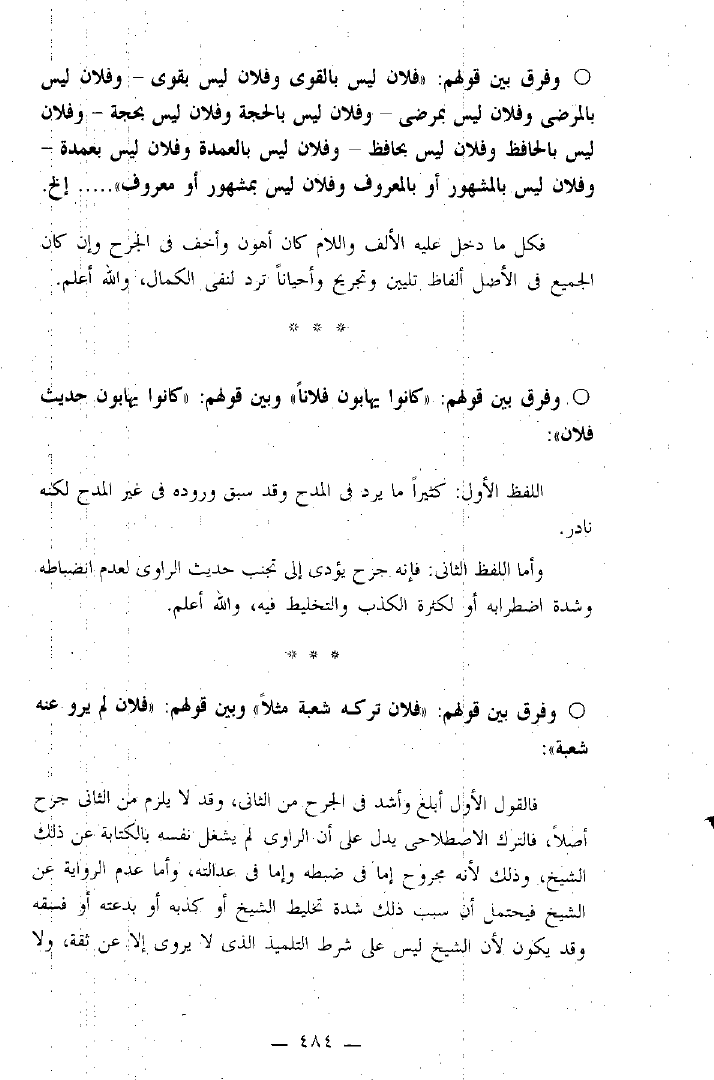 ○ وفرق بين قولهم: «فلان ليس بالقوى وفلان ليس بقوى – وفلان ليس
بالمرضى وفلان ليس بمرضى – وفلان ليس بالحجة وفلان ليس بحجة – وفلان
ليس بالحافظ وفلان ليس بحافظ – وفلان ليس بالعمدة وفلان ليس بعمدة –
وفلان ليس بالمشهور أو بالمعروف وفلان ليس بمشهور أو معروف»..... إلخ.
فكل ما دخل عليه الألف واللام كان أهون وأخف فى الجرح وإن كان
الجميع فى الأصل ألفاظ تليين وتجريح وأحياناً ترد لنفى الكمال، والله أعلم.
* * *
○ وفرق بين قولهم: «كانوا يهابون فلاناً» وبين قولهم: «كانوا يهابون حديث
فلان»:
اللفظ الأول: كثيراً ما يرد فى المدح وقد سبق وروده فى غير المدح لكنه
نادر.
وأما اللفظ الثانى: فإنه جرح يؤدى إلى تجنب حديث الراوى لعدم انضباطه
وشدة اضطرابه أو لكثرة الكذب والتخليط فيه، والله أعلم.
* * *
○ وفرق بين قولهم: «فلان تركه شعبة مثلاً» وبين قولهم: «فلان لم يرو عنه
شعبة»:
فالقول الأول أبلغ وأشد فى الجرح من الثانى، وقد لا يلزم من الثانى جرح
أصلاً، فالترك الاصطلاحى يدل على أن الراوى لم يشغل نفسه بالكتابة عن ذلك
الشيخ، وذلك لأنه مجروح إما فى ضبطه وإما فى عدالته، وأما عدم الرواية عن
الشيخ فيحتمل أن سبب ذلك شدة تخليط الشيخ أو كذبه أو بدعته أو فسقه
وقد يكون لأن الشيخ ليس على شرط التلميذ الذى لا يروى إلا عن ثقة، ولا
— ٤٨٤ —